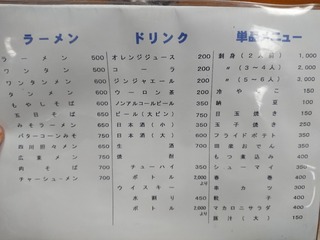 ラーメン
ラーメン 500
ワンタン 500
ワンタンメン 600
メン 600
もやしそば 650
五目そば 650
みそラーメン 650
バターコーンみそ 750
四川担々メン 650
広東メン 750
肉そば 700
チャーシューメン 700
ドリンク
オレンジジュース 200
コーラ 200
ジンジャエール 200
ウーロン茶 200
ノンアルコールビール 350
ビール(大ビン) 550
日本酒(小) 350
日本酒(大) 600
生酒 700
焼酎
チューハイ 350
ボトル 2,000より
ウイスキー
水割り 450
ボトル 2,000より
単品メニュー
刺身(2人前) 1,000
〃(3~4人) 2,000
〃(5~6人) 3,000
冷やっこ 150
納豆 100
目玉焼き 150
玉子焼き 250
フライドポテト 350
田楽おでん 350
もつ煮込み 400
シューマイ 350
春巻 350
串カツ 350
餃子 400
マカロニサラダ 400
豚汁(大) 150